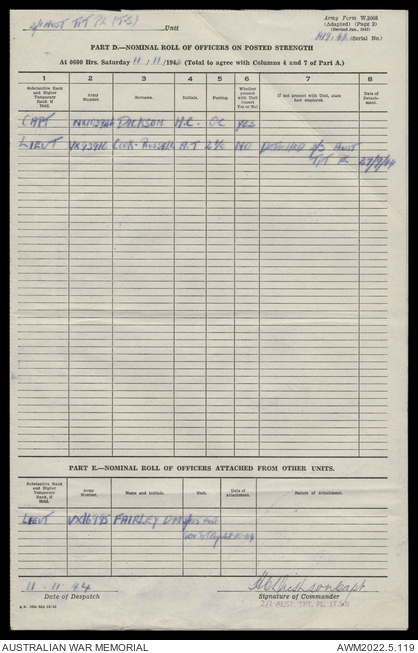 2/1 AUST TPT PL (T-S) Unit
Army Form W.3008
(Adapted) (Page 2)
(Revised Jan., 1943)
(Serial No.)
PART D.—NOMINAL ROLL OF OFFICERS ON POSTED STRENGTH
At 0600 Hrs. Saturday 11/11/194 (Total to agree with Columns 4 and 7 of Part A.)
1 2 3 4 5 6 7 8
Substantive Rank and Higher Temporary Rank, if Held
Army Number.
Surname.
Initials.
Posting.
Whether present with Unit (insert Yes or No)
If not present with Unit, state how employed.
Date of Detachment.
CAPT DICKSON H.C. OC YES
LIEUT COOK-RUSSELL A.T 2I/C NO DETACHED 2/3 AUST
TPT PL 27/9/44
PART E.—NOMINAL ROLL OF OFFICERS ATTACHED FROM OTHER UNITS.
Substantive Rank and Higher Temporary Rank, if Held
Army Number.
Name and Initials.
Unit.
Date of Attachment.
Nature of Attachment.
LIEUT VX16995 FAIRLEY D M
28-10-44
11-11-44
Date of Despatch
H C Dickson Capt
Signature of Commander
2/1 AUST. TPT. PL. (T.S.)
AUSTRALIAN WAR MEMORIAL
AWM2022.5.119